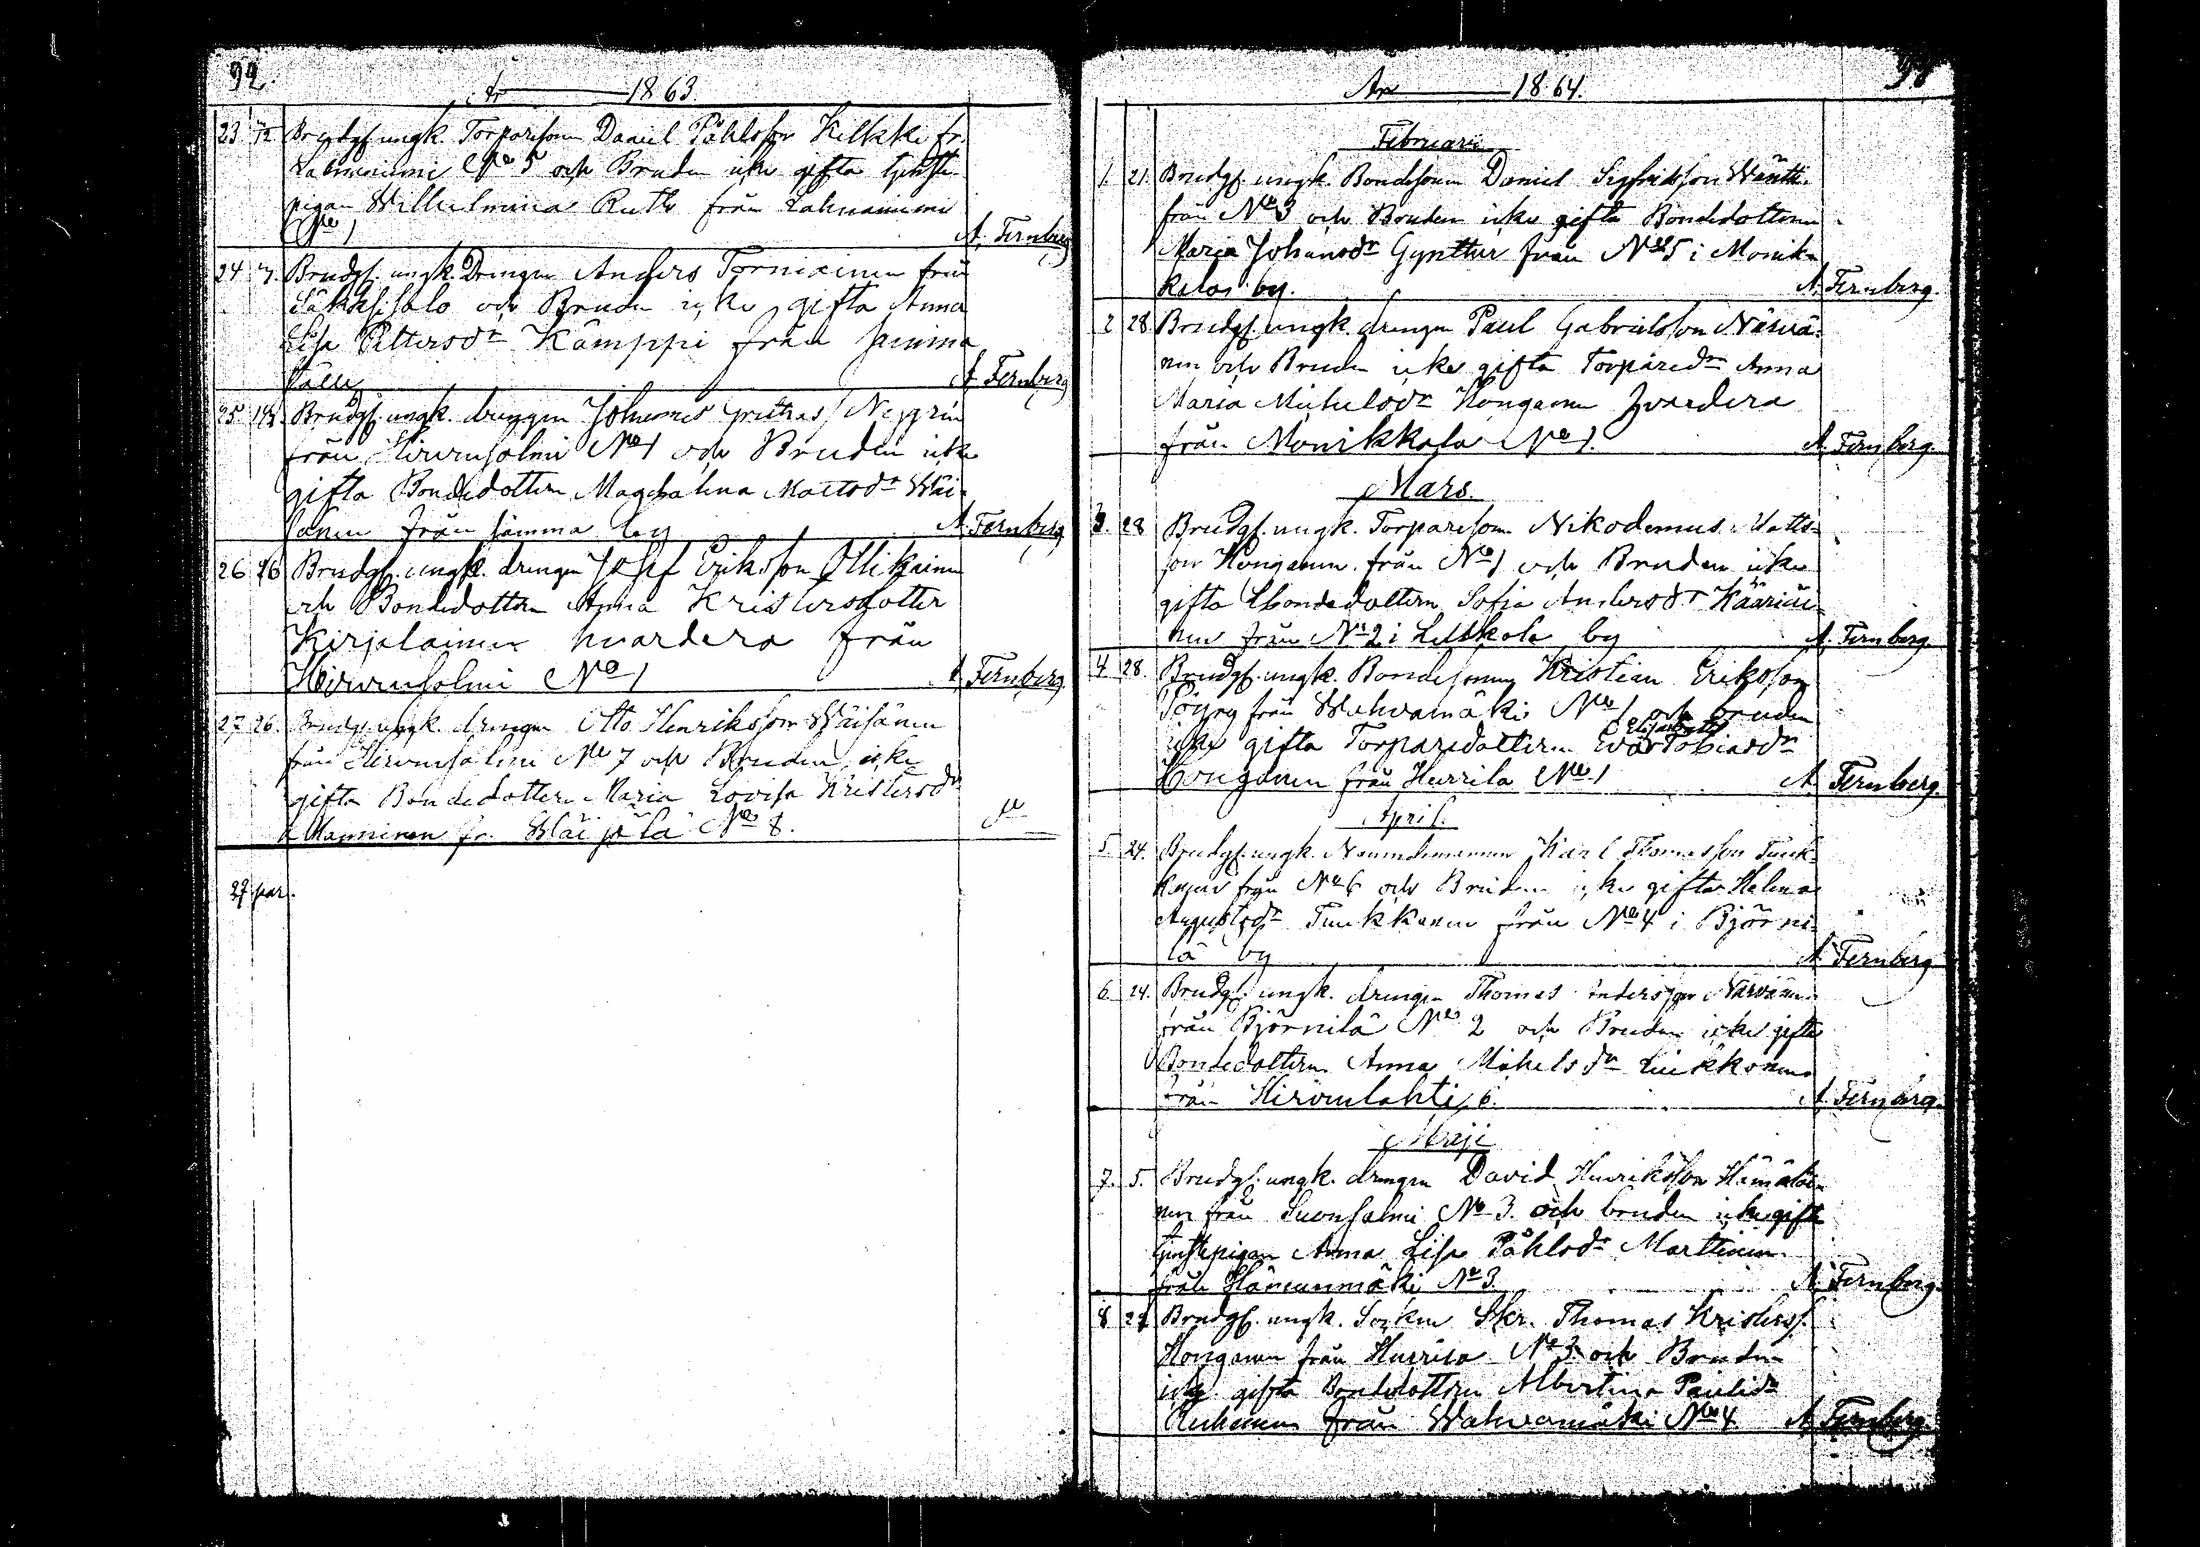 92.
År 1863.
23 Brudg. ungk. Torparesonen Daniel Påhlsson Kilkki fr.
Lahnaniemi No 5 och Bruden icke gifta tjenste-
pigan Wilhelmina Ruth från Lahnaniemi
No 1 A. Fernberg
24 Brudg. ungk. Drengen Anders Torniainen från
Säkkisalo och Bruden icke gifta Anna
Lisa Pettersdr Kämppi från samma
ställe A. Fernberg
25 Brudg. ungk. drengen Johannes Negrin
från Hirvensalmi No 1 och Bruden icke
gifta Bondedottren Magdalena Mattsdr Wäi-
sänen från samma by A. Fernberg
26 26 Brudg. ungk. drengen Josef Eriksson Ollikainen
och Bondedottren Anna Kristersdotter
Kirjalainen hvardera från
Hirvensalmi No 1 A. Fernberg.
27 26. Brudg. ungk. drengen Otto Henriksson Wäisänen
från Hirvensalmi No 7 och Bruden icke
gifta Bondedottren Maria Lovisa Kristersdr
Manninen fr. Wäisälä No 8.
27 par.
År 1864.
Februari
1. 21. Brudg. ungk. Bondesonen Daniel Sigfridsson
från No 3 och Bruden icke gifta Bondedottren
Maria Johansdr Gynther från No 5 i Monik-
kala by. A. Fernberg.
2 28. Brudg. ungk. drengen Paul Gabrielsson Närvä-
nen och Bruden icke gifta Torparedr Anna
Maria Michelsdr Honganen hvardera
från Monikkala No 1. A. Fernberg.
Mars.
3. 28 Brudg. ungk. Torparesonen Nikodemus Matts-
son Honganen från No 1 och Bruden icke
gifta Bondedottren Sofia Andersdr Kääriäi-
nen från No 2 i Lelkola by A. Fernberg.
4. 28. Brudg. ungk. Bondesonen Kristian Eriksson
Pöyry från Wahvamäki No 1 och bruden
Elisabeth
icke gifta Torparedottren Eva Tobiasdr
Honganen från Hurrila No 1 A. Fernberg.
April.
5. 24. Brudg. ungk. Nämndemannen Karl Thomasson Tuuk-
kanen från No 6 och Bruden icke gifta Helena
Augustsdr Tuukkanen från No 4 i Björni-
lä by A. Fernberg
6. 24. Brudg. ungk. drengen Thomas Andersson Närvänen
från Björnilä No 2 och Bruden icke gifta
Bondedottren Anna Mikelsdr Liukkonen
från Hirvenlahti 6. A. Fernberg.
Maji
7. 5. Brudg. ungk. drengen David Henriksson Hämäläi-
nen från Suonsalmi No 3. och bruden icke gifta
tjenstepigan Anna Lisa Påhlsdr Marttinen
från Hämeenmäki No 3. A. Fernberg.
8 Brudg. ungk. Socken Skr. Thomas Kristers.
Honganen från Hurrila No 3 och Bruden
icke gifta Bondedottren Albertina Paulsdr
från Wahvamäki No 4 A. Fernberg.